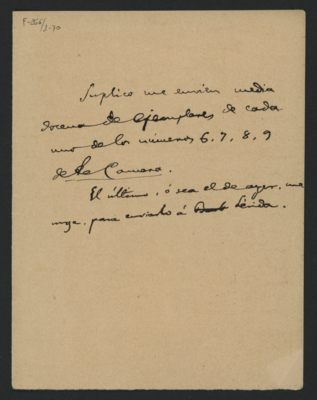 F-266/1-70
Suplico me envien media
docena de ejemplares de cada
uno de los números 6, 7, 8, 9
de La Camara.
El último, ó sea el de ayer, me
urge, para enviarlo á Lérida.